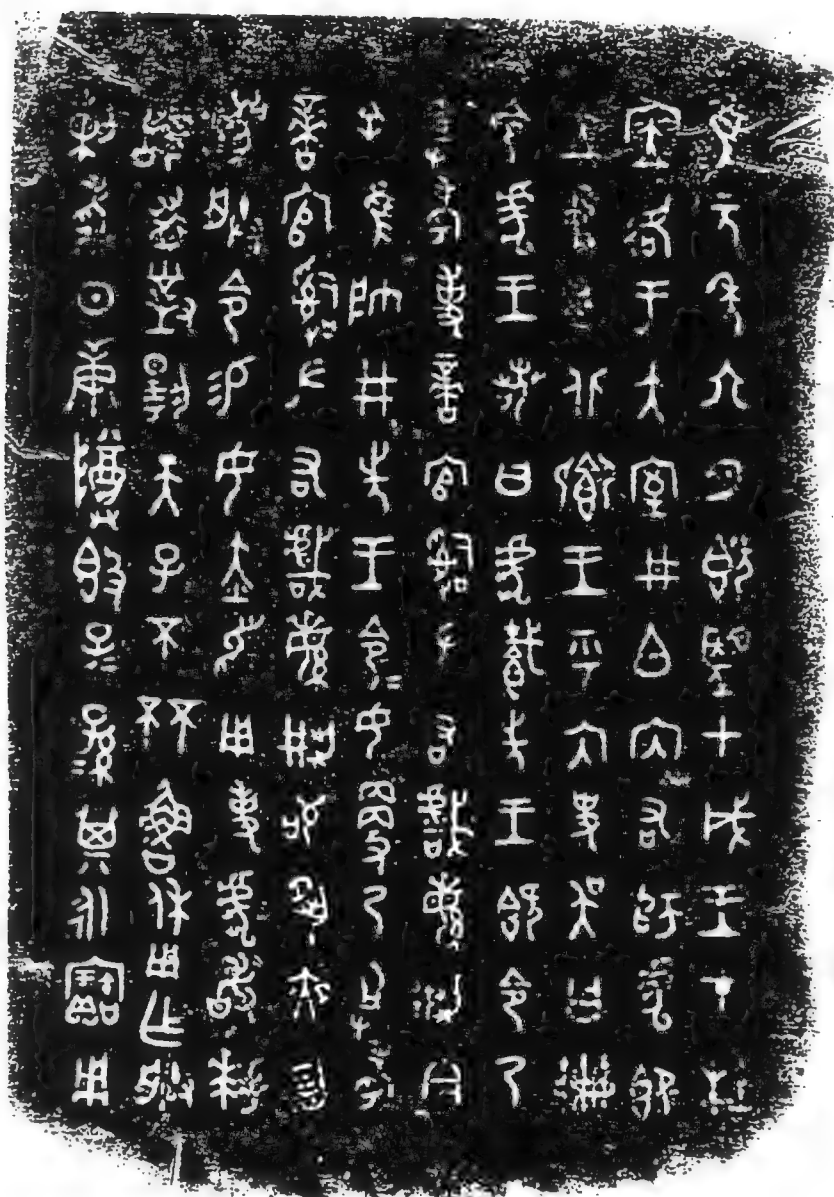 隹元年六月既望甲戌王才杜
㡯各于大室井白內右師虎即
立中廷北鄉王乎內史吳曰冊
令虎王若曰虎𩛥先王既令乃
且考事啻官𤔲左右戲緐荊今
余隹帥井先王令=女更乃且考
啻官𤔲左右戲緐荊苟夙夜勿
灋朕令易女赤舄用事虎敢拜
𩒨首對揚天子不杯魯休用乍朕
剌考日庚尊𣪘子=孫=其永寶用